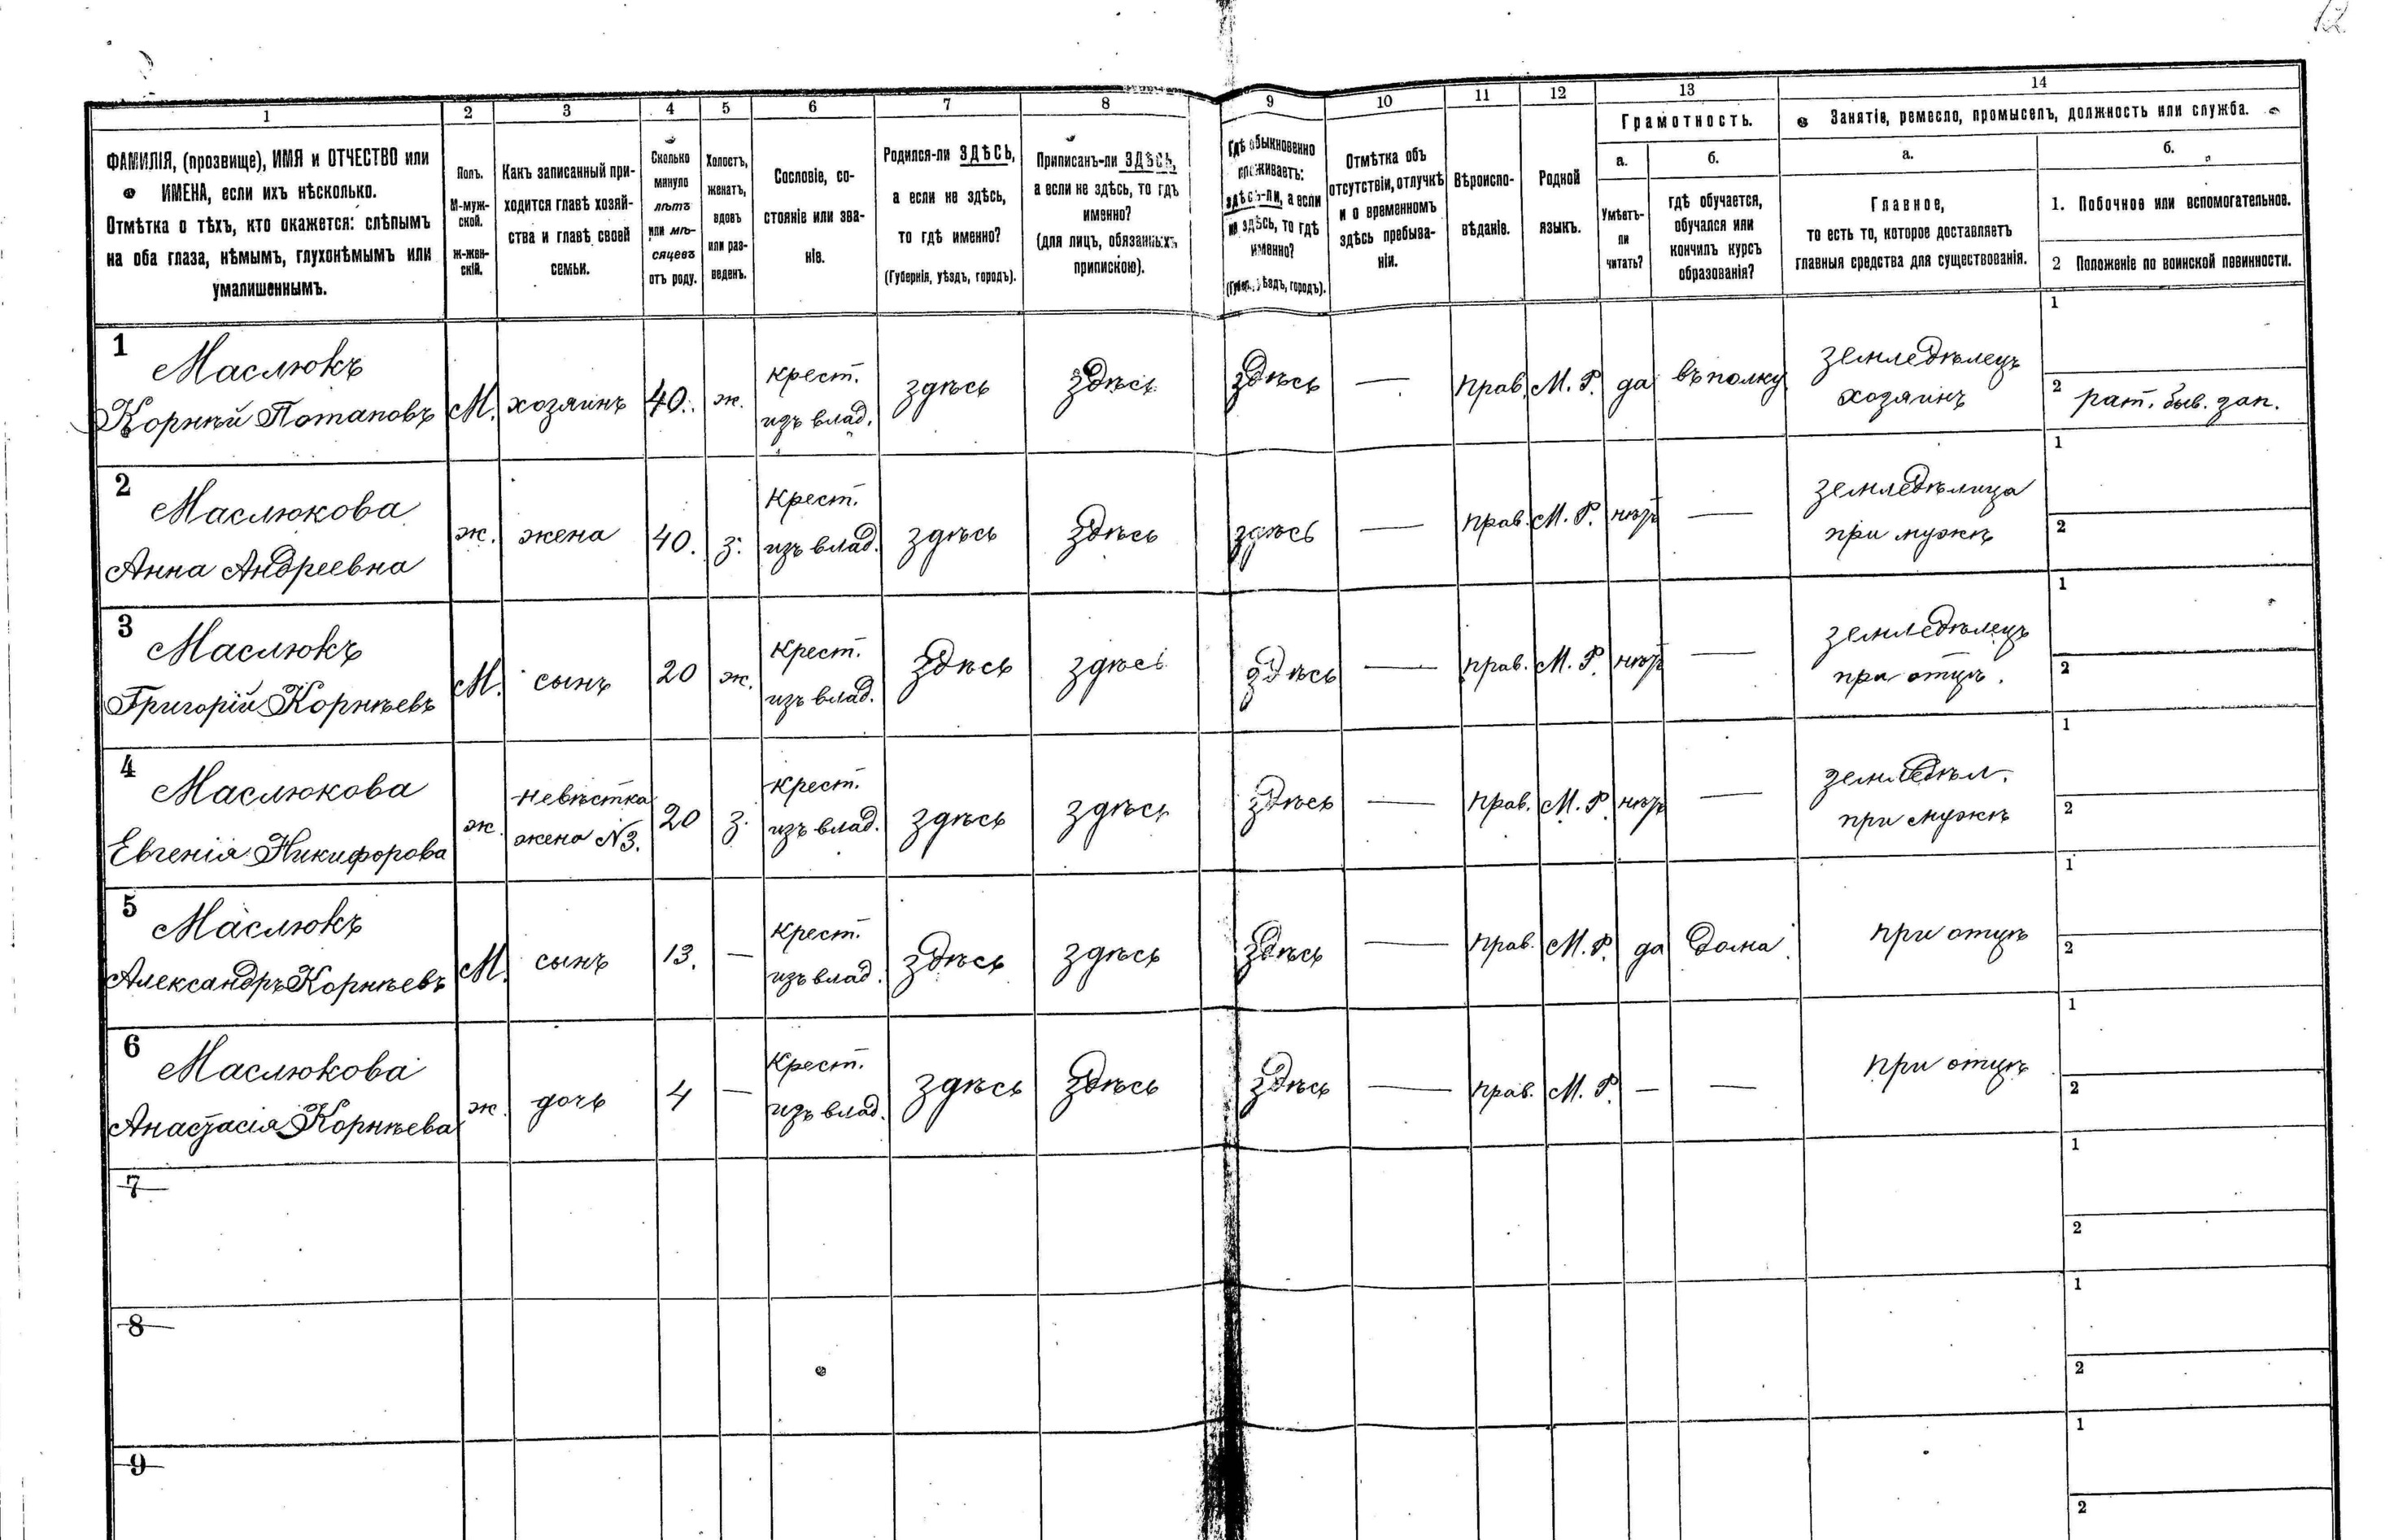 12
1 2 3 4 5 6 7 8 9 10 11 12 13 14
ФАМИЛІЯ, (прозвище), ИМЯ и ОТЧЕСТВО или
ИМЕНА, если ихъ нѣсколько.
Отмѣтка о тѣхъ, кто окажется: слѣпымъ
на оба глаза, нѣмымъ, глухонѣмымъ или
умалишеннымъ.
Полъ.
М-муж-
ской.
ж-жен-
скій.
Какъ записанный при-
ходится главѣ хозяй-
ства и главѣ своей
семьи.
Сколько
минуло
лѣтъ
или мѣ-
сяцевъ
отъ роду.
Холостъ,
женатъ,
вдовъ
или раз-
веденъ.
Сословіе, со-
стояніе или зва-
ніе.
Родился-ли ЗДѢСЬ,
а если не здѣсь,
то гдѣ именно?
(Губернія, уѣздъ, городъ).
Приписанъ-ли ЗДѢСЬ,
а если не здѣсь, то гдѣ
именно?
(для лицъ, обязанныхъ
припискою).
Гдѣ обыкновенно
проживаетъ:
здѣсь-ли, а если
не здѣсь, то гдѣ
именно?
(Губер., уѣздъ, городъ).
Отмѣтка объ
отсутствіи, отлучкѣ
и о временномъ
здѣсь пребыва-
ніи.
Вѣроиспо-
вѣданіе.
Родной
языкъ.
Грамотность.
а.
Умѣетъ-
ли
читать?
б.
гдѣ обучается,
обучался или
кончилъ курсъ
образованія?
Занятіе, ремесло, промыселъ, должность или служба.
а.
Главное,
то есть то, которое доставляетъ
главныя средства для существованія.
б.
1. Побочное или вспомогательное.
2 Положеніе по воинской повинности.
1
Маслюкъ
Корнѣй Потаповъ
М.
хозяинъ
40.
ж.
крест.
изъ влад.
здѣсь
здѣсь
здѣсь
—
прав.
М. Р.
да
въ полку
земледѣлецъ
хозяинъ
1
2 рат. быв. зап.
2
Маслюкова
Анна Андреевна
ж.
жена
40.
з.
Крест.
изъ влад.
здѣсь
здѣсь
здѣсь
—
прав.
М. Р.
нѣтъ
—
земледѣлица
при мужѣ
1
2
3
Маслюкъ
Григорій Корнѣевъ
М.
сынъ
20
ж.
Крест.
изъ влад.
здѣсь
здѣсь
здѣсь
—
прав.
М. Р.
нѣтъ
—
земледѣлецъ
при отцѣ.
1
2
4
Маслюкова
Евгенія Никифорова
ж.
невѣстка
жена №3.
20
з.
Крест.
изъ влад.
здѣсь
здѣсь
здѣсь
—
прав.
М. Р.
нѣтъ
—
земледѣл.
при мужѣ
1
2
5
Маслюкъ
Александръ Корнѣевъ
М.
сынъ
13.
—
Крест.
изъ влад.
здѣсь
здѣсь
здѣсь
—
прав.
М. Р.
да
дома
при отцѣ
1
2
6
Маслюкова
Анастасія Корнѣева
ж.
дочь
4
—
Крест.
изъ влад.
здѣсь
здѣсь
здѣсь
—
прав.
М. Р.
—
—
при отцѣ
1
2
7
1
2
8
1
2
9
1
2